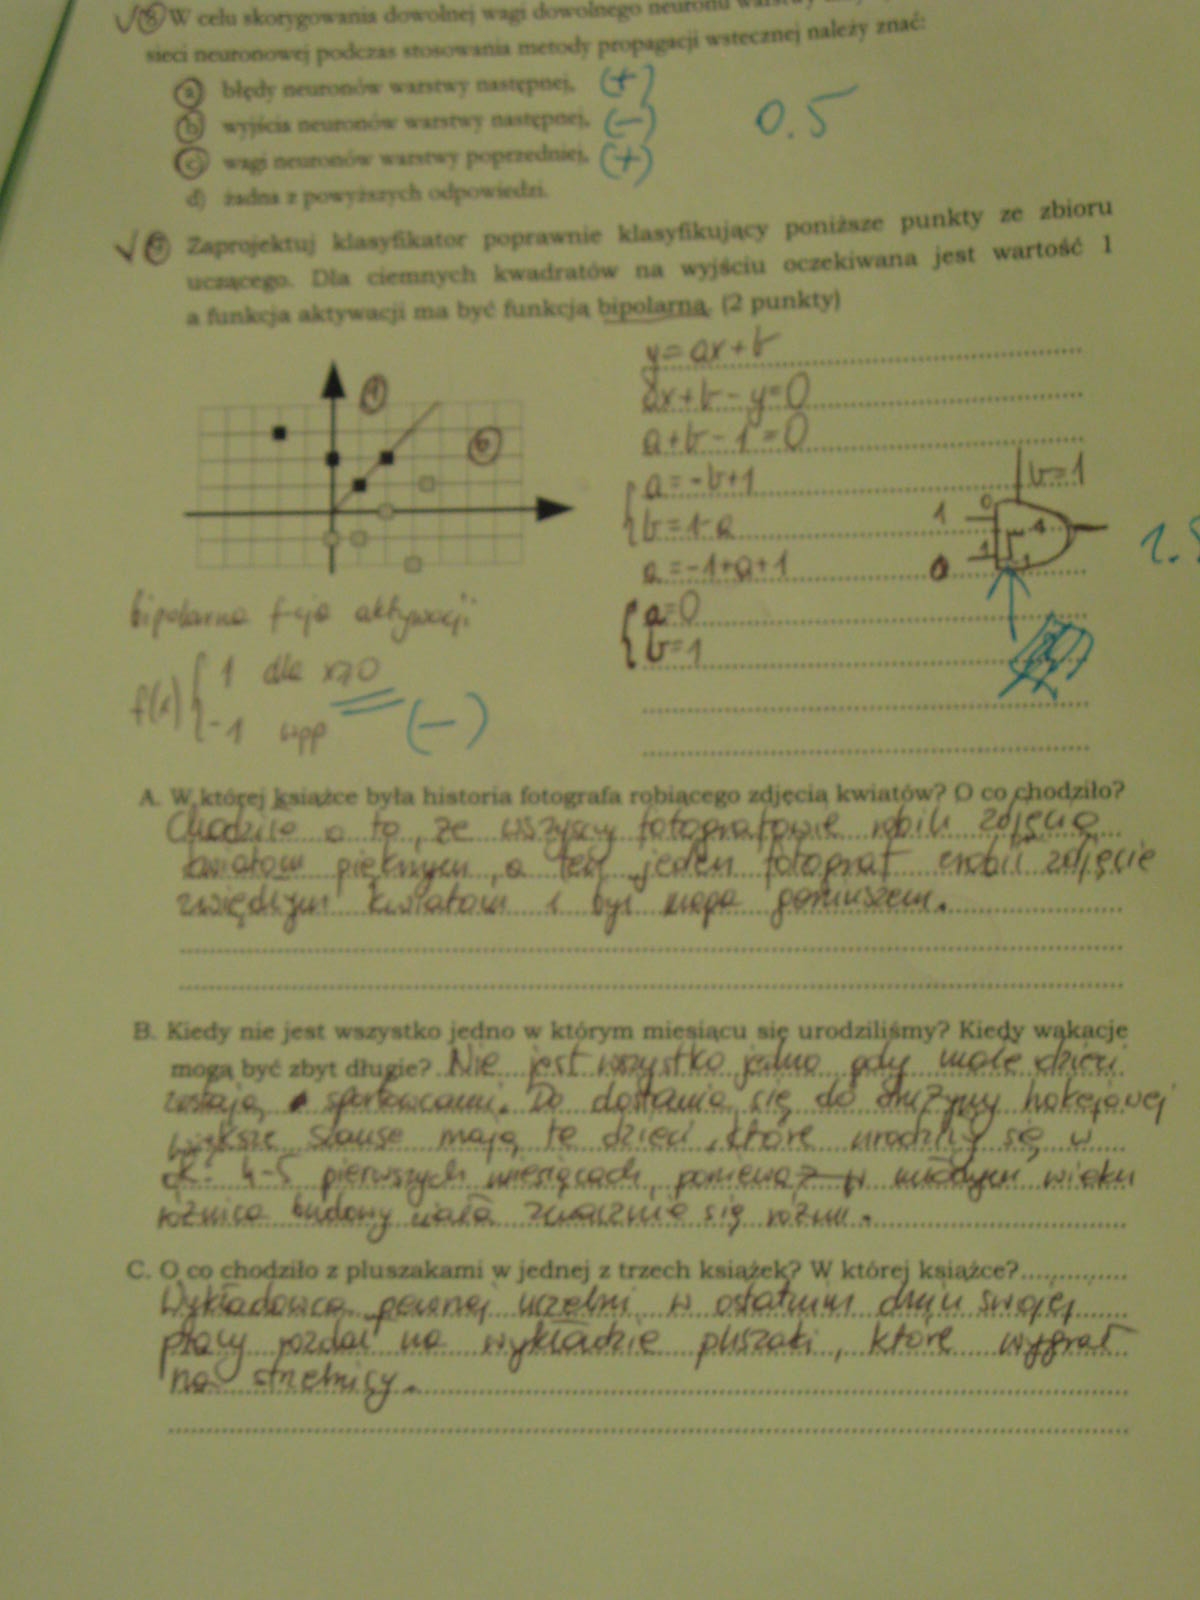 8 W celu skorygowania dowolnej wagi dowolnego neuronu
sieci neuronowej podczas stosowania metody propagacji wstecznej należy znać:
a) błędy neuronów warstwy następnej, (+)
b) wyjścia neuronów warstwy następnej, (-)
c) wagi neuronów warstwy poprzedniej, (+)
0.5
d) żadna z powyższych odpowiedzi.
9 Zaprojektuj klasyfikator poprawnie klasyfikujący poniższe punkty ze zbioru
uczącego. Dla ciemnych kwadratów na wyjściu oczekiwana jest wartość 1
a funkcja aktywacji ma być funkcją bipolarną. (2 punkty)
y=ax+b
ax+b-y=0
a+b-1=0
a=-b+1
b=1-a
a=-1+a+1
a=0
b=1
b=1
1
0
bipolarna f-cja aktywacji
f(x) 1 dla x≥0
-1 wpp (-)
A. W której książce była historia fotografa robiącego zdjęcia kwiatów? O co chodziło?
Chodziło o to, że wszyscy fotografowie robili zdjęcia
kwiatom pięknym, a ten jeden fotograf zrobił zdjęcie
zwiędłym kwiatom i był mega geniuszem.
B. Kiedy nie jest wszystko jedno w którym miesiącu się urodziliśmy? Kiedy wakacje
mogą być zbyt długie? Nie jest wszystko jedno gdy małe dzieci
zostają sportowcami. Do dostania się do drużyny hokejowej
większe szanse mają te dzieci, które urodziły się w
ok. 4-5 pierwszych miesiącach, ponieważ w młodym wieku
różnica budowy ciała znacznie się różni.
C. O co chodziło z pluszakami w jednej z trzech książek? W której książce?
Wykładowca pewnej uczelni w ostatnim dniu swojej
pracy rozdał na wykładzie pluszaki, które wygrał
na strzelnicy.